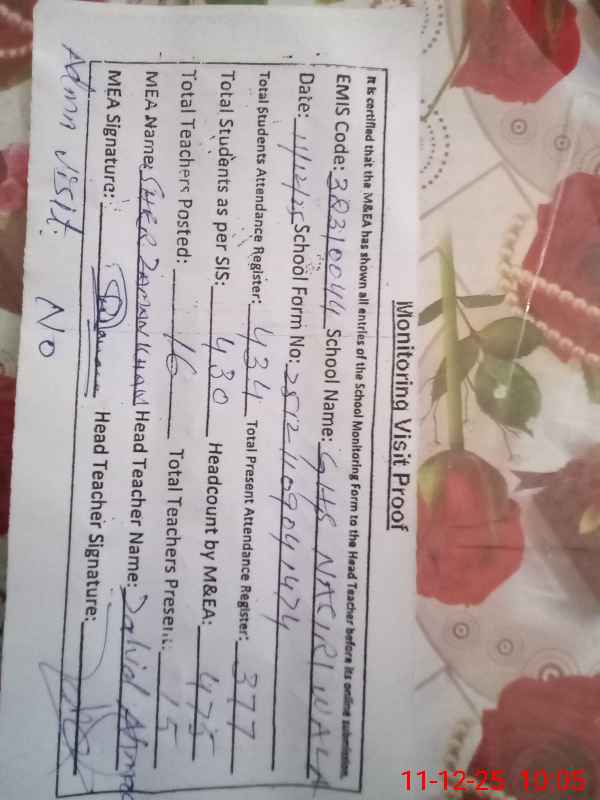 Monitoring Visit Proof
It is certified that the M&EA has shown all entries of the School Monitoring Form to the Head Teacher before its online submission.
EMIS Code: 38310044 School Name: GHS NASIRI WALA
Date: 11/12/25 School Form No: 25121109041474
Total Students Attendance Register: 434 Total Present Attendance Register: 377
Total Students as per SIS: 430 Headcount by M&EA: 475
Total Teachers Posted: 16 Total Teachers Present: 15
MEA Name: SHER ZAMAN KHAN Head Teacher Name: Zahid Ahmad
MEA Signature: Head Teacher Signature:
Admn Visit: No
11-12-25 10:05